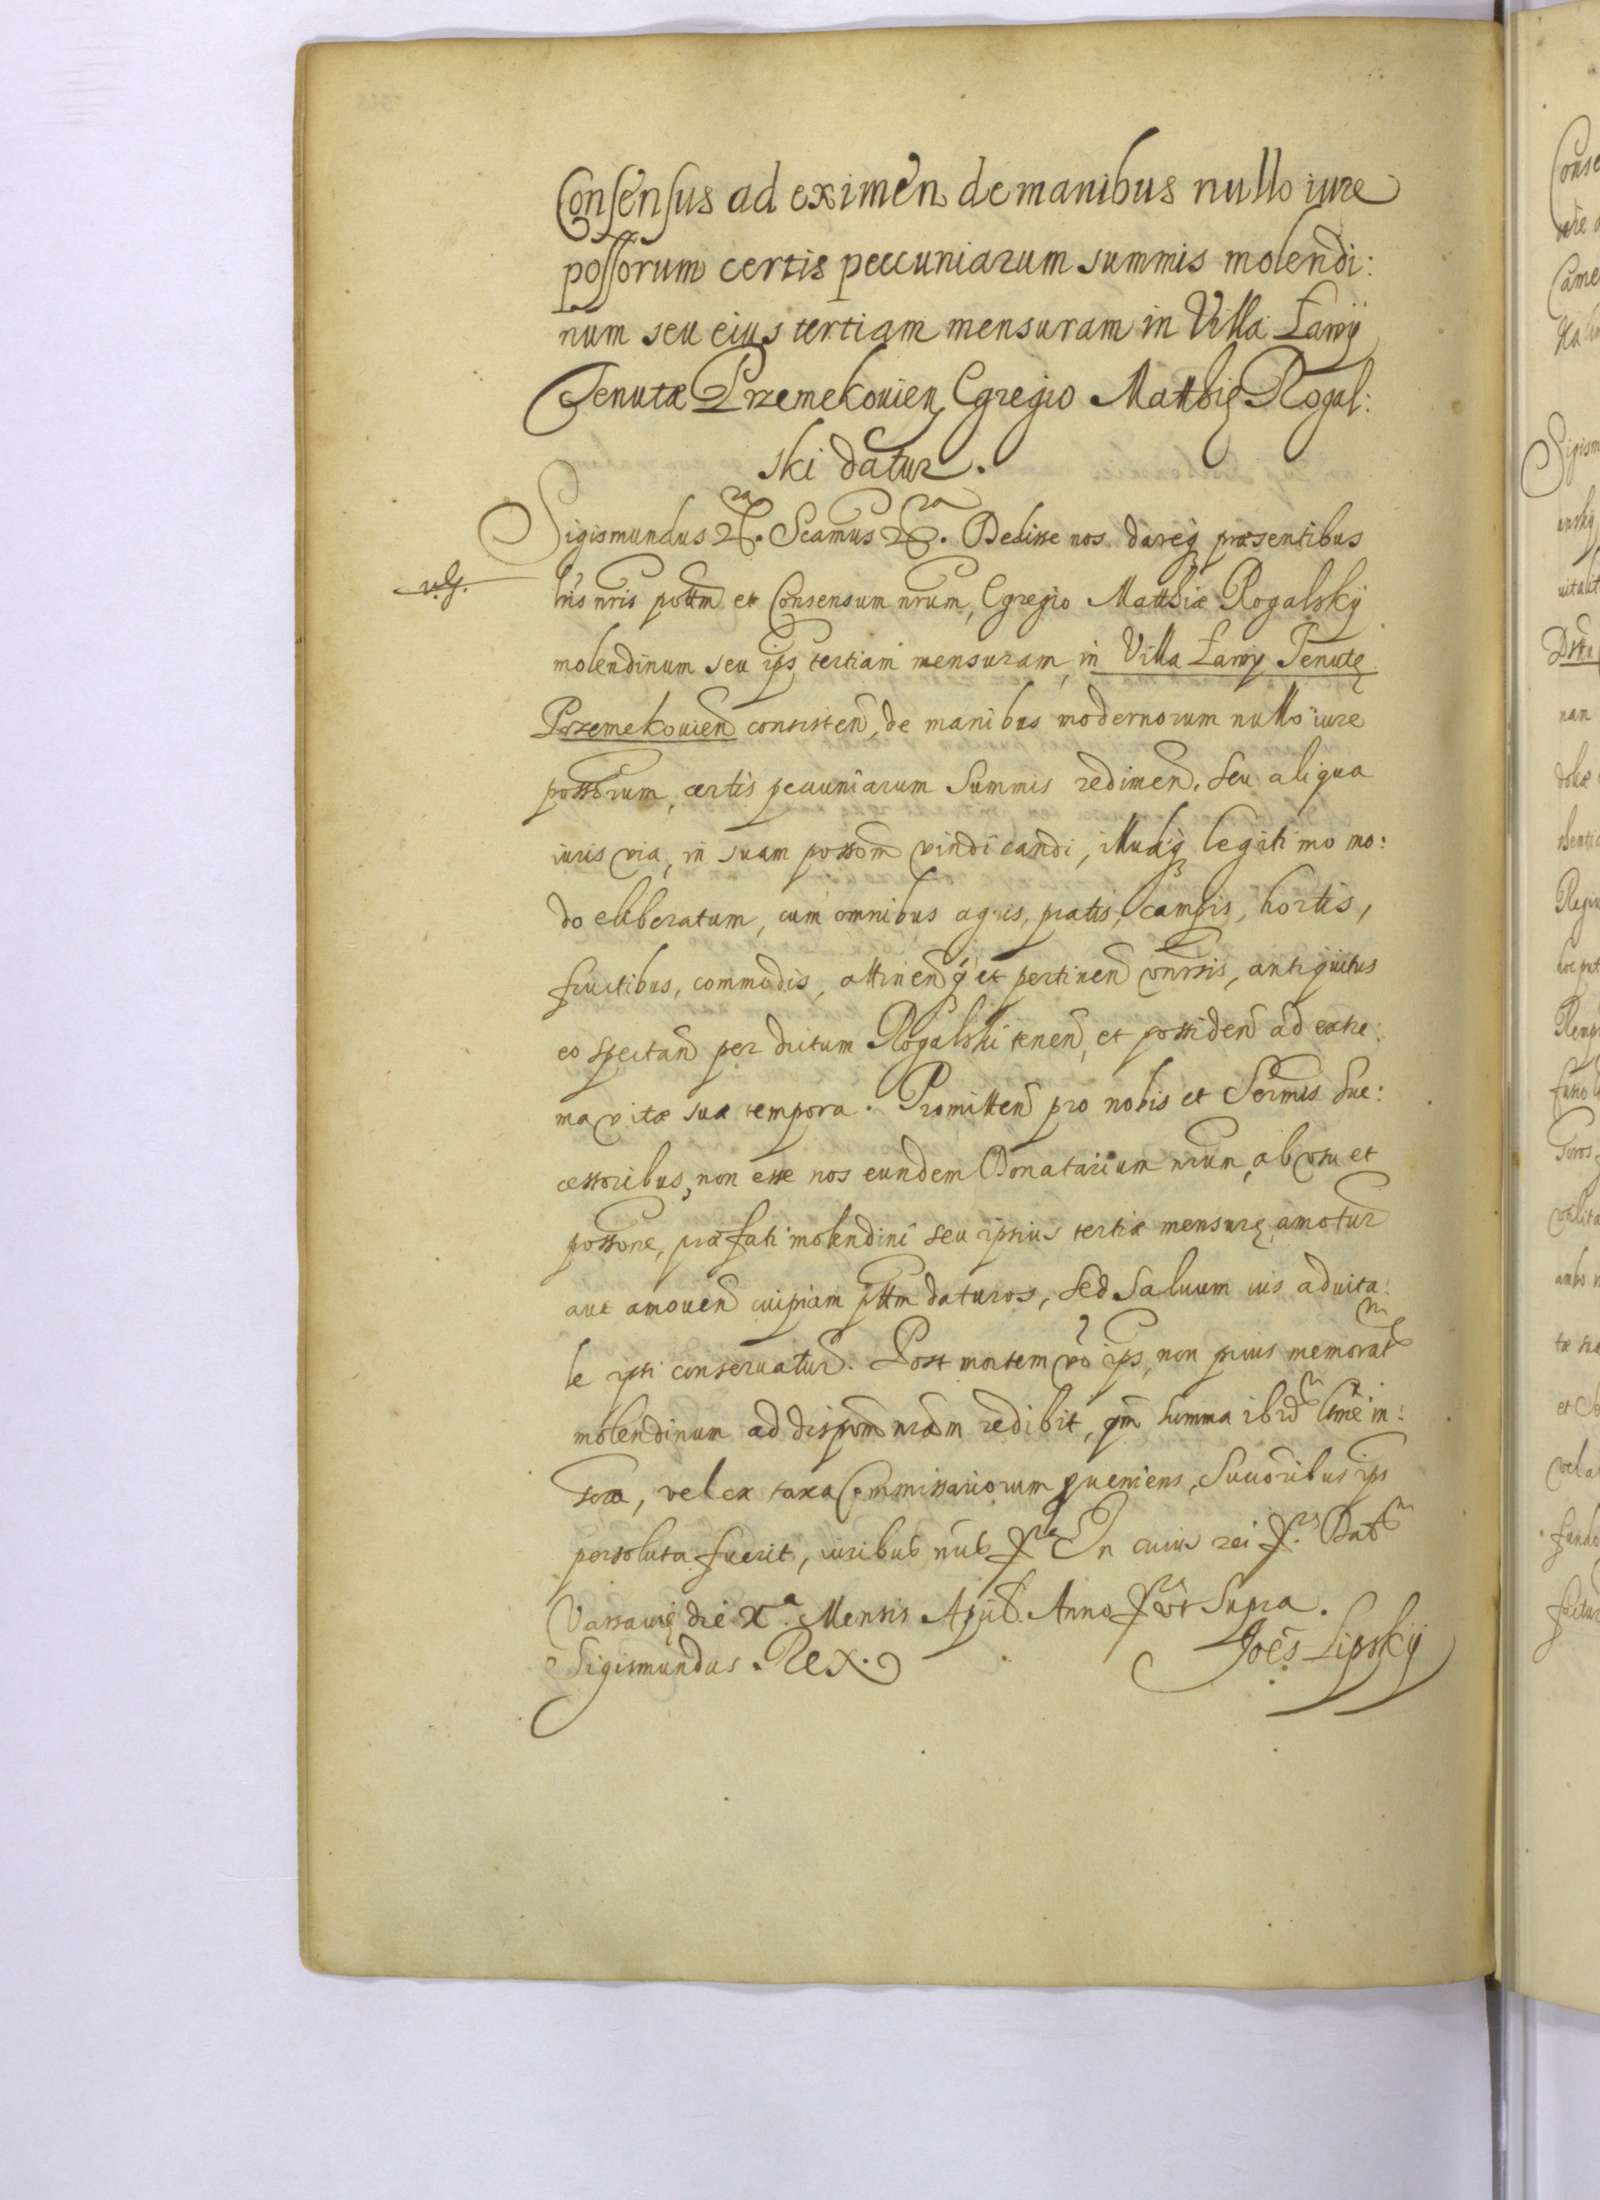 Consensus ad eximen de manibus nullo iure
possorum certis peccuniarum summis molendi:
num seu eius tertiam mensuram in Villa Ławÿ
Tenutæ Przemekouien Egregio Matthię Rogal:
ski datur.
Sigismundus &ra. Scamus &ra. Dedisse nos dareq præsentibus
v.g.
lris nris pottm et Consensum nrum, Egregio Matthiæ Rogalskÿ
molendinum seu ips tertiam mensuram, in Villa Ławy Tenutę
Przemekouien consisten, de manibus modernorum nullo iure
possorum, certis pecuniarum Summis redimen, seu aliqua
iuris via, in suam possom vindicandi, illudq legitimo mo:
do eliberatum, cum omnibus agris, pratis, campis, hortis,
fructibus, commodis, attinen q et pertinen vnirsis, antiquitus
eo spectan per dictum Rogalski tenen, et possiden ad extre:
ma vitæ suæ tempora. Promitten pro nobis et Sermis suc:
cessoribus, non esse nos eundem Donatarium nrum, ab vsu et
possone, præfati molendini seu ipsius tertiæ mensurę, amotur
aut amouen cuipiam pttm daturos, sed saluum ius aduita:
le ipsi conseruatur. Post mortem vo ips, non prius memorat
molendinum ad dispom nram redibit, qm summa ibid ltme in:
scra, vel ex taxa Commissariorum pueniens, Succoribus ips
persoluta fuerit, iuribus nris &ra In cuius rei &. Dat
Varsauię die Xa. Mensis April. Anno & vt supra.
Sigismundus Rex.
Joes Lipskÿ